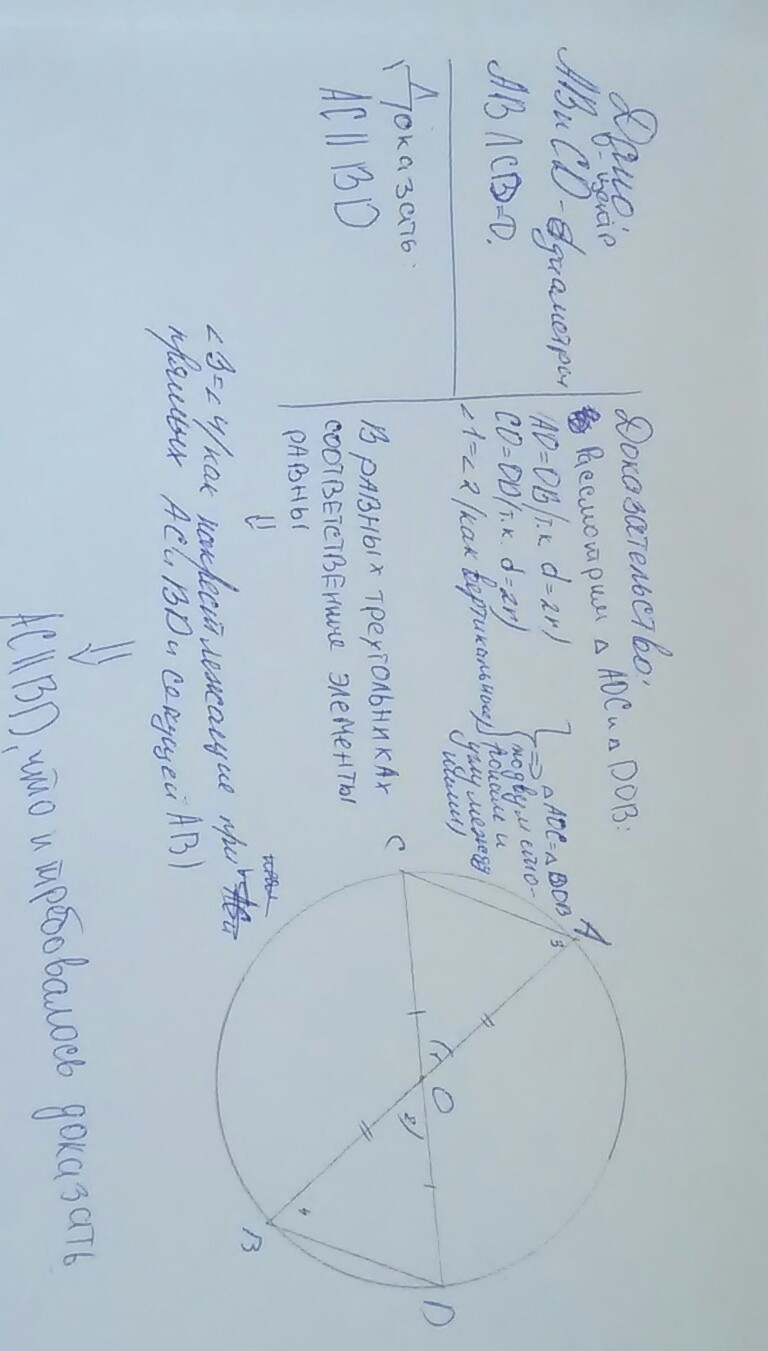 Дано:
О-центр
AB и CD - диаметры
AB∩CD=O.
Доказать:
AC || BD
Доказательство:
Рассмотрим △ AOC и △ DOB:
AO=OB (т.к. d=2r)
CO=OD (т.к. d=2r)
∠1=∠2 (как вертикальные)
⇒ △ AOC=△ BOD
(по двум сто-
ронам и
углу между
ними)
В РАВНЫХ ТРЕУГОЛЬНИКАХ
СООТВЕТСТВЕННЫЕ ЭЛЕМЕНТЫ
РАВНЫ
⇓
∠3=∠4 (как накрест лежащие при
прямых AC и BD и секущей AB)
⇓
AC || BD, что и требовалось доказать
C
A
3
1
O
2
4
B
D